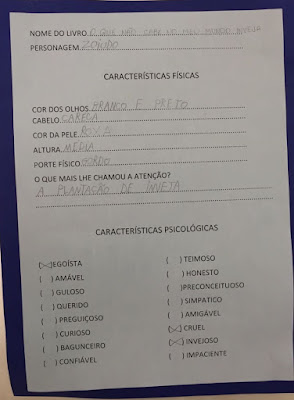 NOME DO LIVRO O QUE NÃO CABE NO MEU MUNDO INVEJA
PERSONAGEM ZOIUDO
CARACTERÍSTICAS FÍSICAS
COR DOS OLHOS BRANCO E PRETO
CABELO CARECA
COR DA PELE ROXA
ALTURA MÉDIA
PORTE FÍSICO GORDO
O QUE MAIS LHE CHAMOU A ATENÇÃO?
A PLANTAÇÃO DE INVEJA
CARACTERÍSTICAS PSICOLÓGICAS
(X)EGOÍSTA ( ) TEIMOSO
( ) AMÁVEL ( ) HONESTO
( ) GULOSO ( )PRECONCEITUOSO
( ) QUERIDO ( ) SIMPATICO
( ) PREGUIÇOSO ( ) AMIGÁVEL
( ) CURIOSO (X) CRUEL
( ) BAGUNCEIRO (X) INVEJOSO
( ) CONFIÁVEL ( ) IMPACIENTE